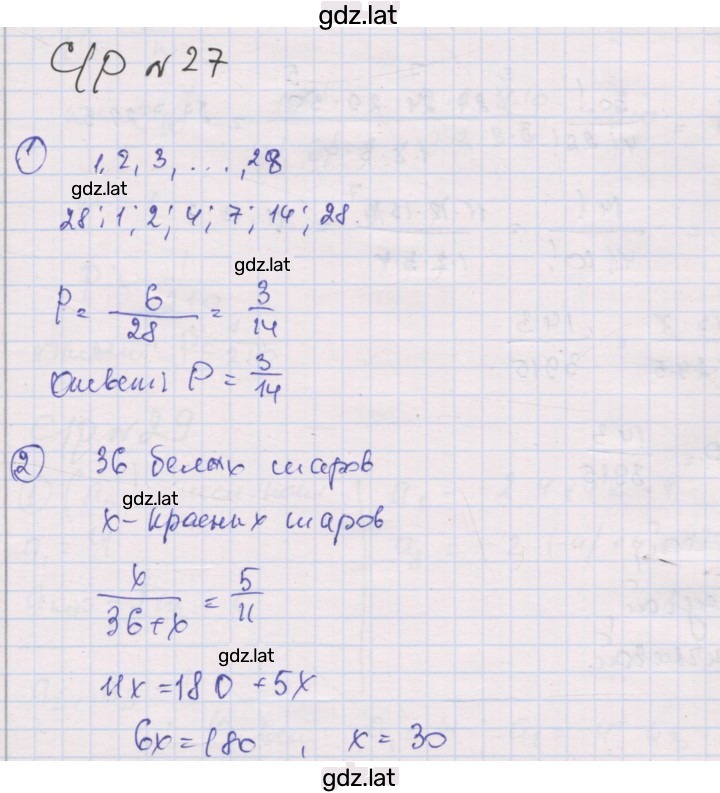 gdz.lat
С/р №27
① 1, 2, 3, ...., 28
gdz.lat
28; 1; 2; 4; 7; 14; 28.
gdz.lat
P = 6/28 = 3/14
Ответ: P = 3/14
② 36 белых шаров
gdz.lat
x - красных шаров
x/(36+x) = 5/11
gdz.lat
11x = 180 + 5x
6x = 180, x = 30
gdz.lat